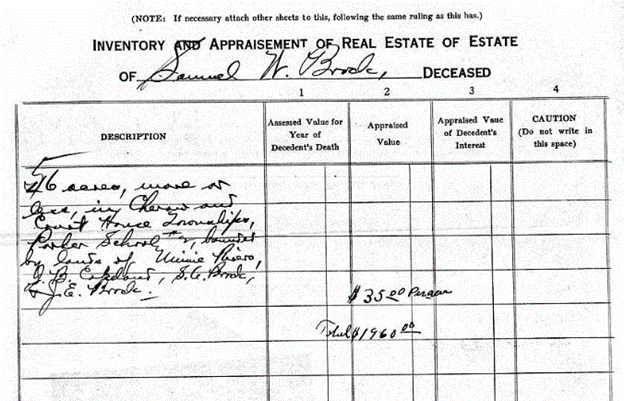 (NOTE: If necessary attach other sheets to this, following the same ruling as this has.)
INVENTORY AND APPRAISEMENT OF REAL ESTATE OF ESTATE
OF Samuel W. Brock, DECEASED
1 2 3 4
DESCRIPTION
Assessed Value for
Year of
Decedent's Death
Appraised
Value
Appraised Vaue
of Decedent's
Interest
CAUTION
(Do not write in
this space)
56 acres, more or
less, in Cheraw and
Court House Townships,
School, bounded
by lands of Minnie
B S.C. Brock,
& J.E. Brock.
$35.00 Per acre
Total $1960.00